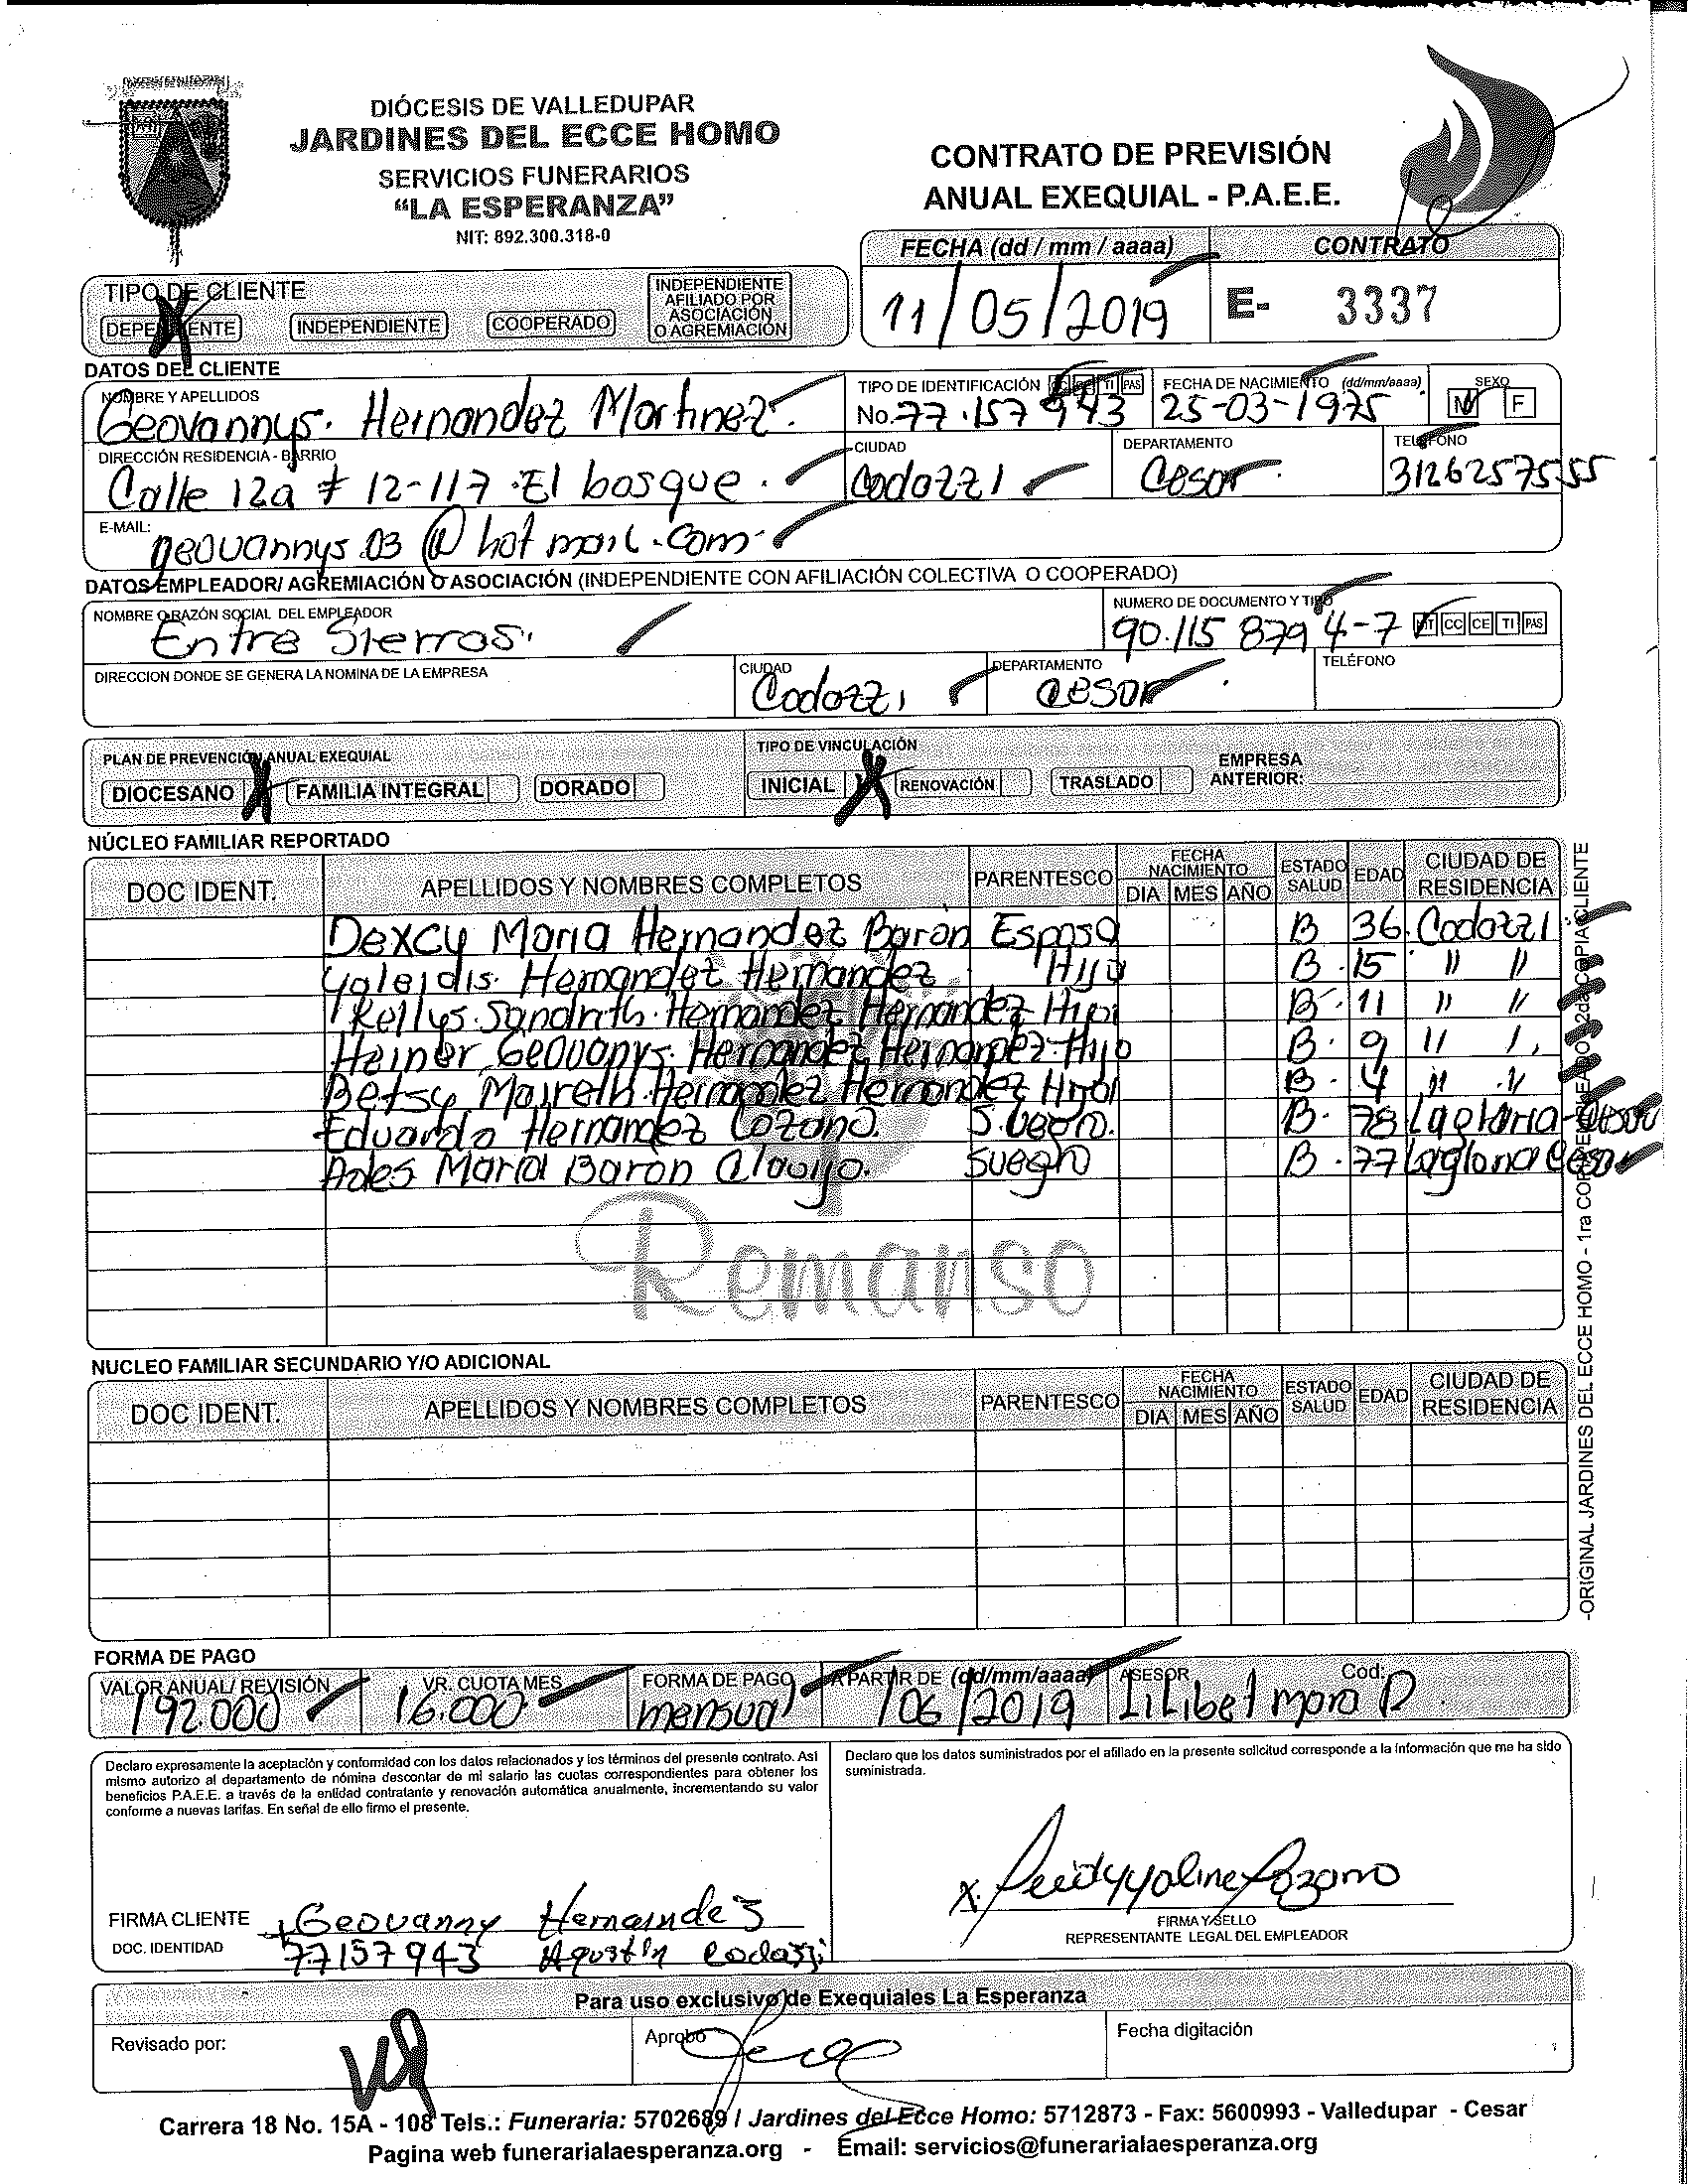 DIÓCESIS DE VALLEDUPAR
JARDINES DEL ECCE HOMO
SERVICIOS FUNERARIOS
“LA ESPERANZA”
NIT: 892.300.318-0
CONTRATO DE PREVISIÓN
ANUAL EXEQUIAL - P.A.E.E.
FECHA (dd / mm / aaaa) CONTRATO
11/05/2019 E- 3337
TIPO DE CLIENTE
DEPENDIENTE INDEPENDIENTE COOPERADO INDEPENDIENTE AFILIADO POR ASOCIACIÓN O AGREMIACIÓN
DATOS DEL CLIENTE
NOMBRE Y APELLIDOS TIPO DE IDENTIFICACIÓN TI PAS FECHA DE NACIMIENTO (dd/mm/aaaa) SEXO
Geovannys. Hernandez Martinez. No. 77.157943 25-03-1975 M F
DIRECCIÓN RESIDENCIA - BARRIO CIUDAD DEPARTAMENTO TELÉFONO
Calle 12a # 12-117 El bosque. Codazzi Cesar. 3126257555
E-MAIL:
geovannys.03@hotmail.com
DATOS EMPLEADOR/ AGREMIACIÓN O ASOCIACIÓN (INDEPENDIENTE CON AFILIACIÓN COLECTIVA O COOPERADO)
NOMBRE O RAZÓN SOCIAL DEL EMPLEADOR NUMERO DE DOCUMENTO Y TIPO
Entre Sierras. 90.115 879 4-7 NIT CC CE TI PAS
DIRECCION DONDE SE GENERA LA NOMINA DE LA EMPRESA CIUDAD DEPARTAMENTO TELÉFONO
Codazzi Cesar
PLAN DE PREVENCIÓN ANUAL EXEQUIAL TIPO DE VINCULACIÓN EMPRESA ANTERIOR:
DIOCESANO X FAMILIA INTEGRAL DORADO INICIAL X RENOVACIÓN TRASLADO
NÚCLEO FAMILIAR REPORTADO
DOC IDENT. APELLIDOS Y NOMBRES COMPLETOS PARENTESCO FECHA NACIMIENTO DIA MES AÑO ESTADO SALUD EDAD CIUDAD DE RESIDENCIA
Dexcy Maria Hernandez Baron Esposa B 36 Codazzi
Yaleidis. Hernandez Hernandez Hija B 15 " "
Kellys. Sandrith. Hernandez Hernandez Hija B 11 " "
Heiner Geovanys. Hernandez Hernandez Hijo B. 9 " "
Betsy Maireth Hernandez Hernandez Hija B. 4 " "
Eduardo Hernandez Lozano. Suegro. B. 78 La gloria-Cesar
Maria Baron Suegra B. 77 La gloria Cesar
Remanso
NUCLEO FAMILIAR SECUNDARIO Y/O ADICIONAL
DOC IDENT. APELLIDOS Y NOMBRES COMPLETOS PARENTESCO FECHA NACIMIENTO DIA MES AÑO ESTADO SALUD EDAD CIUDAD DE RESIDENCIA
-ORIGINAL JARDINES DEL ECCE HOMO - 1ra COPIA EMPLEADO 2da COPIA CLIENTE
FORMA DE PAGO
VALOR ANUAL/ REVISIÓN VR. CUOTA MES FORMA DE PAGO A PARTIR DE (dd/mm/aaaa) ASESOR Cod:
192.000 16.000 mensual /06/2019 Lilibet mora D
Declaro expresamente la aceptación y conformidad con los datos relacionados y los términos del presente contrato. Asi
mismo autorizo al departamento de nómina descontar de mi salario las cuotas correspondientes para obtener los
beneficios P.A.E.E. a través de la entidad contratante y renovación automática anualmente, incrementando su valor
conforme a nuevas tarifas. En señal de ello firmo el presente.
Declaro que los datos suministrados por el afiliado en la presente solicitud corresponde a la información que me ha sido
suministrada.
FIRMA CLIENTE Geovanny Hernandez
DOC. IDENTIDAD 77157943 Agustin Codazzi
FIRMA Y SELLO
REPRESENTANTE LEGAL DEL EMPLEADOR
Para uso exclusivo de Exequiales La Esperanza
Revisado por: Aprobó Fecha digitación
Carrera 18 No. 15A - 108 Tels.: Funeraria: 5702689 / Jardines del Ecce Homo: 5712873 - Fax: 5600993 - Valledupar - Cesar
Pagina web funerarialaesperanza.org - Email: servicios@funerarialaesperanza.org